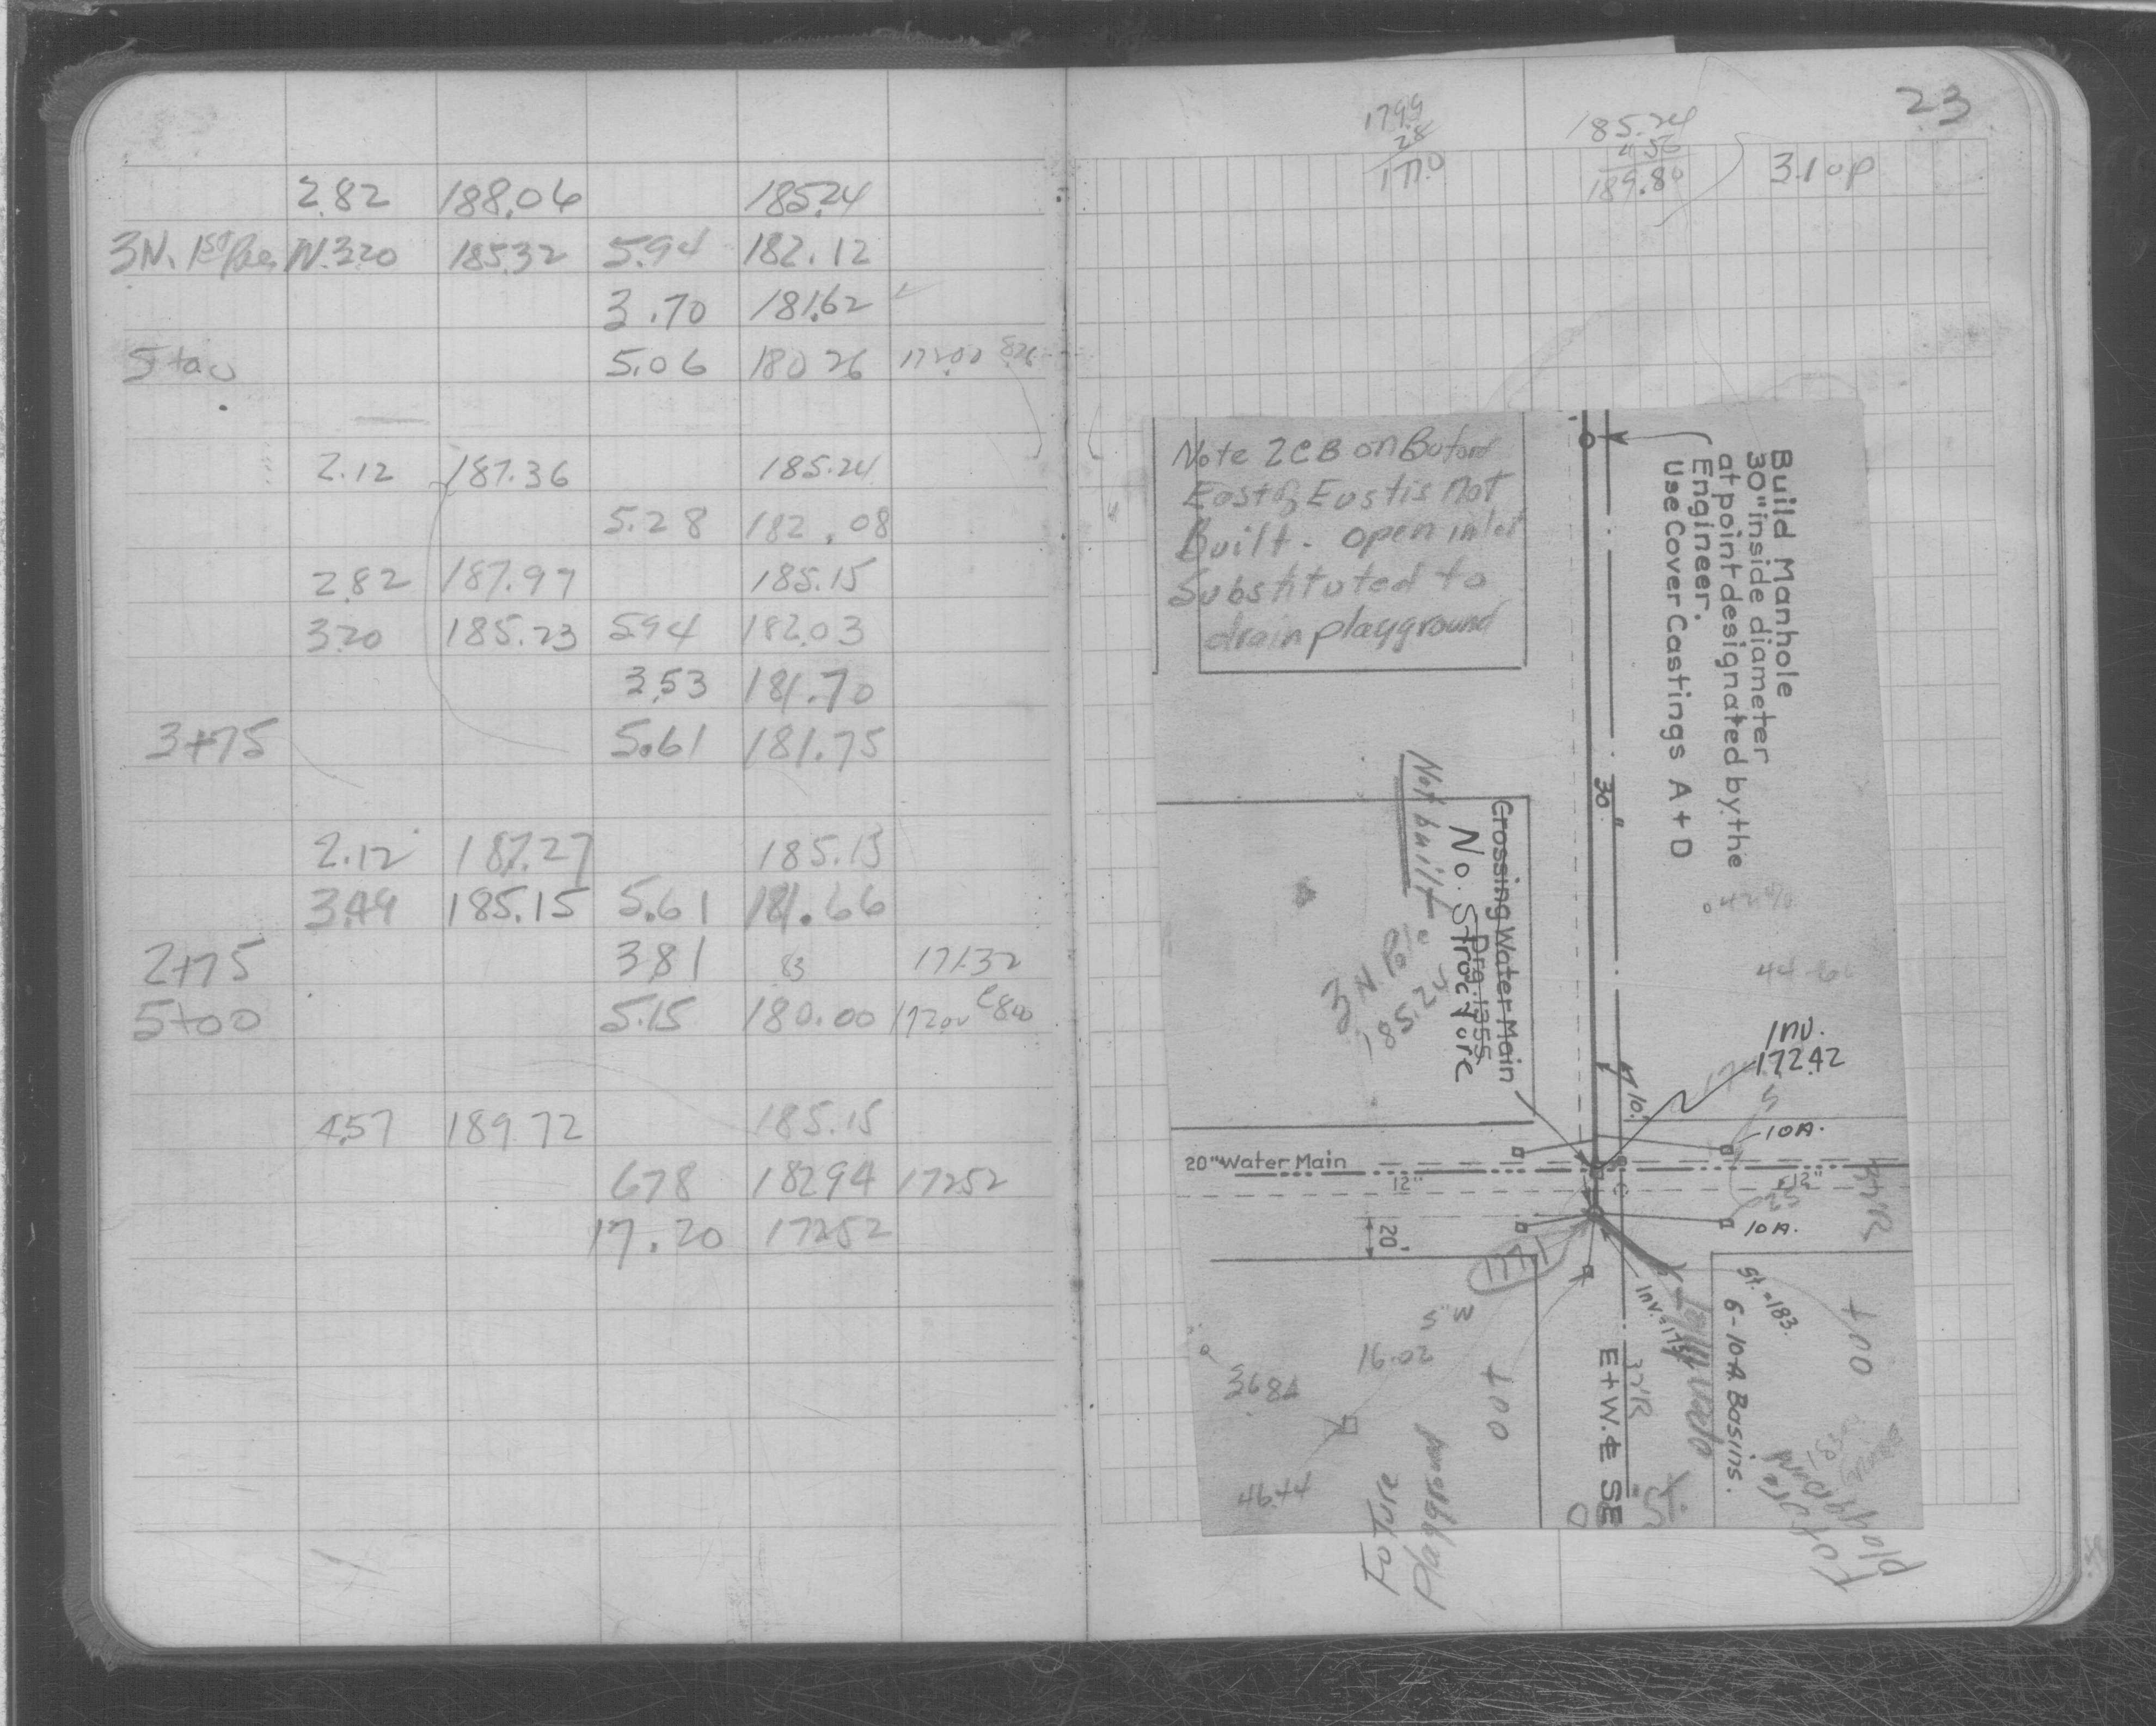 2.82 188.06 185.24
3N. 1st N. 3.20 185.32 5.94 182.12
3.70 181.62
5+00 5.06 180.26 172.00 8.26
2.12 187.36 185.24
5.28 182.08
2.82 187.97 185.15
3.20 185.23 5.94 182.03
3.53 181.70
3+75 5.61 181.75
2.12 187.27 185.15
3.49 185.15 5.61 181.66
2+75 3.81 83 171.32
5+00 5.15 180.00 172.00 C800
4.57 189.72 185.15
6.78 182.94 172.52
17.20 172.52
23
179.9
2.8
177.0
185.24
4.56
189.80
3.10p
Note 2CB on Buford
East of Eustis Not
Built. open inlet
Substituted to
drain playground
Build Manhole
30" inside diameter
at point designated by the
Engineer.
Use Cover Castings A+D
30"
Not built
Crossing Water Main
Drg. 1355
No. Structure
3 N Pole
185.24
44.66
Inv.
172.42
10'
10A.
20" Water Main
12"
12"
10A.
20'
177.1
5" W
16.02
36.84
46.44
out
Future
Playground
E+W.℄ SE
37'R
open inlet
St. =183.
6-10A Basins.
out
Future
playground
St.